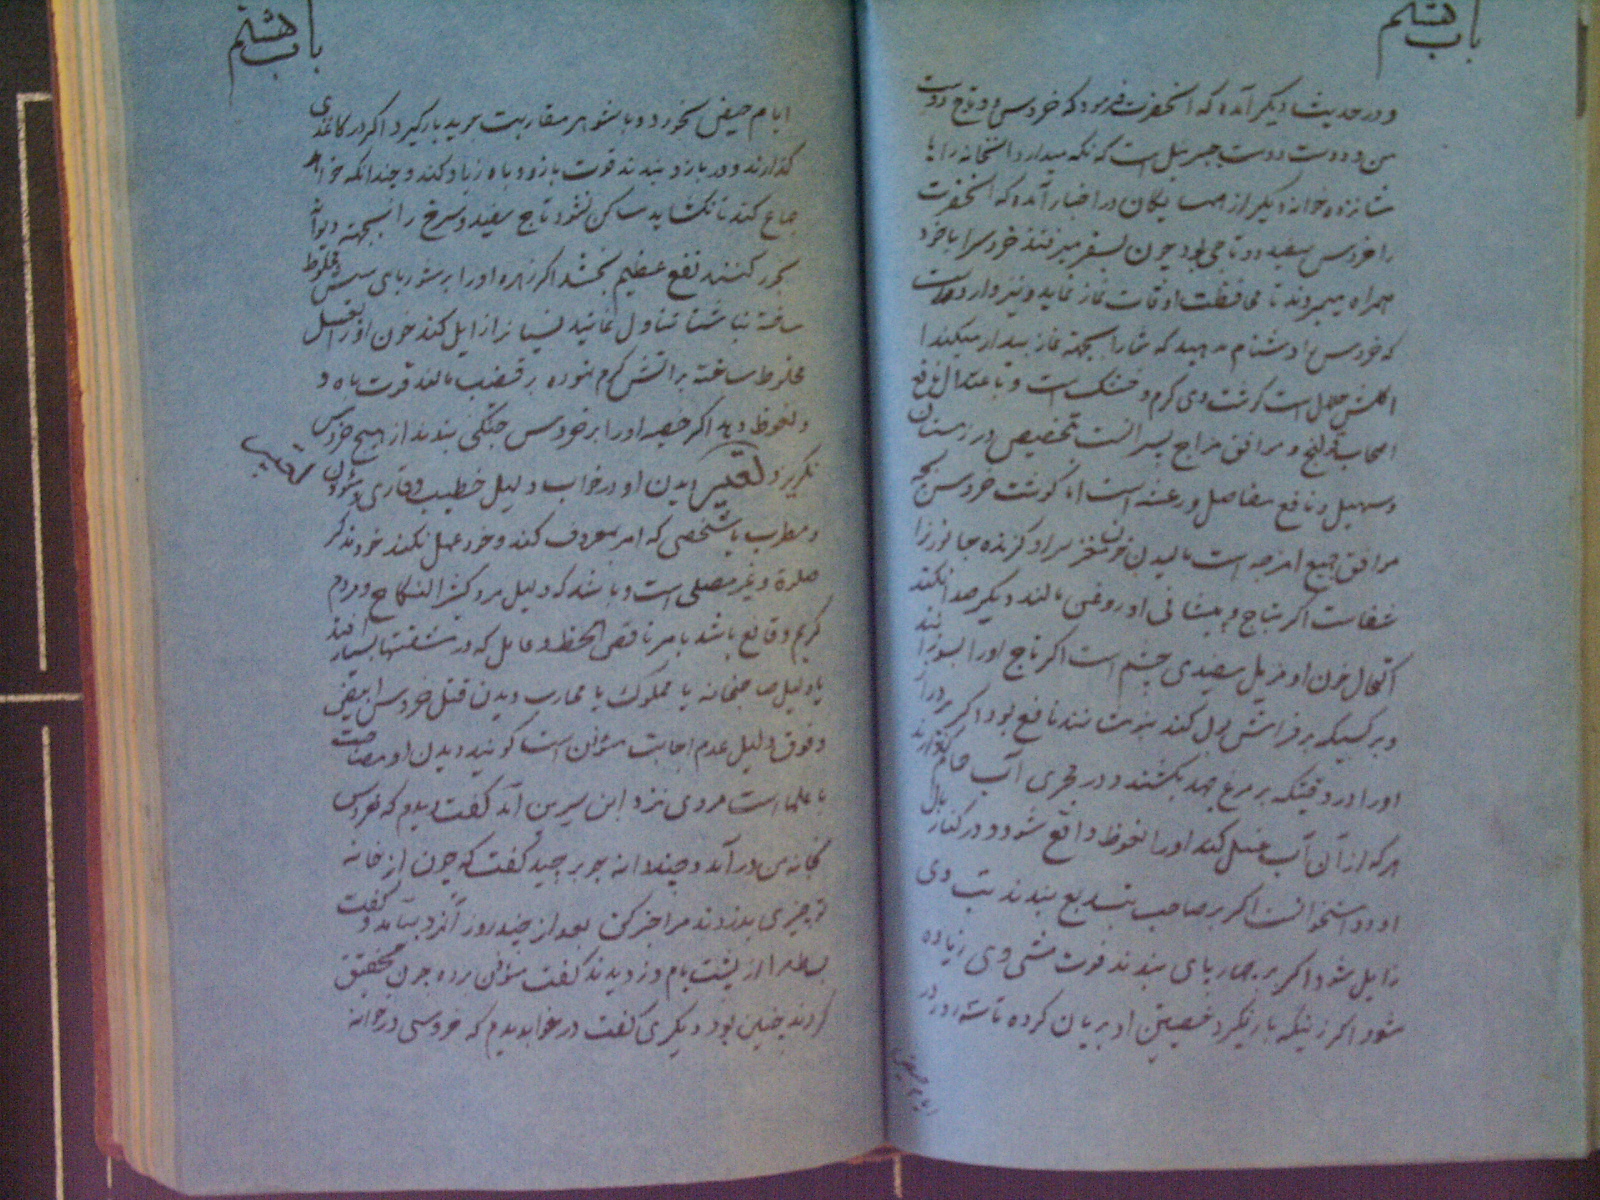 باب هشتم
و در حدیث دیگر آمده که آنحضرت فرمود که خروس دو تاج دوست
من و دوست دوست جبرئیل است که نگه میدارد آنخانه را با
شانزده خانه دیگر از همسایگان در اخبار آمده که آنحضرت
را خروس سفید دو تاجی بود چون بسفر میرفتند خروس را با خود
همراه میبردند تا محافظت اوقات نماز نماید و نیز وارد است
که خروس را دشنام مدهید که شما را بجهة نماز بیدار میکند
اکلش حلال است گوشت وی گرم و خشک است و با عتدال نافع
اصحاب قولنج و موافق مزاج پیرانست بتخصیص در زمستان
و مسهل و نافع مفاصل و رعشه است اما گوشت خروس بچه
موافق جمیع امزجه است مالیدن خون مغز سر او گزنده جانورانرا
شفاست اگر بتاج و پیشانی او روغن مالند دیگر صدا نکند
اکتحال خون او مزیل سفیدی چشم است اگر تاج او را بسوزانند
و بر کسیکه بر فراش بول کند بنوشانند نافع بود اگر پر دراز
او را در وقتیکه بر مرغ جهد بکشند و در مجری آب حمام گذارند
هر که از آن آب غسل کند او را نعوظ واقع شود و در کنار بال
او دو استخوانست اگر بر صاحب تب ربع بندند تب وی
زایل شود اگر بر چهارپای بندند قوت مشی وی زیاده
شود اگر زنیکه بار نگیرد خصیتین او بریان کرده تا سه روز در
ایام حیض
باب هشتم
ایام حیض بخورد و با شوهر مقاربت جوید بار گیرد اگر در کاغذی
گذارند و در بازو بندند قوت بازو و باه زیاد کند و چندانکه خواهد
جماع کند تا نگشاید ساکن نشود تاج سفید و سرخ را بجهة دیوانه
بخور کنند نفع عظیم بخشد اگر زهره او را بر شوربای میش مخلوط
ساخته ناشتا تناول نمایند نسیانرا زایل کند خون او را بعسل
مخلوط ساخته بر آتش گرم نموده بر قضیب مالند قوت باه و
و نعوظ دهد اگر خصیه او را بر خروس جنگی بندند از هیچ خروس
نگریزد تعبیر دیدن او در خواب دلیل خطیب و قاری و مؤذن
و مطرب یا شخصی که امر بمعروف کند و خود عمل نکند خود مذکر
صلوة و غیر مصلی است و باشد که دلیل مرد کثیر النکاح و مردم
کریم و قانع باشد یا مرد ناقص الحظ و عامل که در مشقتها بسیار افتد
یا دلیل صاحبخانه یا مملوک یا محارب دیدن قتل خروس ابیض
و فوق دلیل عدم اجابت مؤذن است گویند دیدن او مصاحبت
با علما است مردی نزد ابن سیرین آمد گفت دیدم که خروس
بخانه من در آمد و چند دانه جو برچید گفت که چون از خانه
تو چیزی بدزدند مرا خبر کن بعد از چند روز آنمرد بیامد و گفت
بساط مرا از پشت بام دزدیدند گفت مؤذن برده چون تحقیق
کردند چنین بود دیگری گفت در خواب دیدم که خروسی در خانه